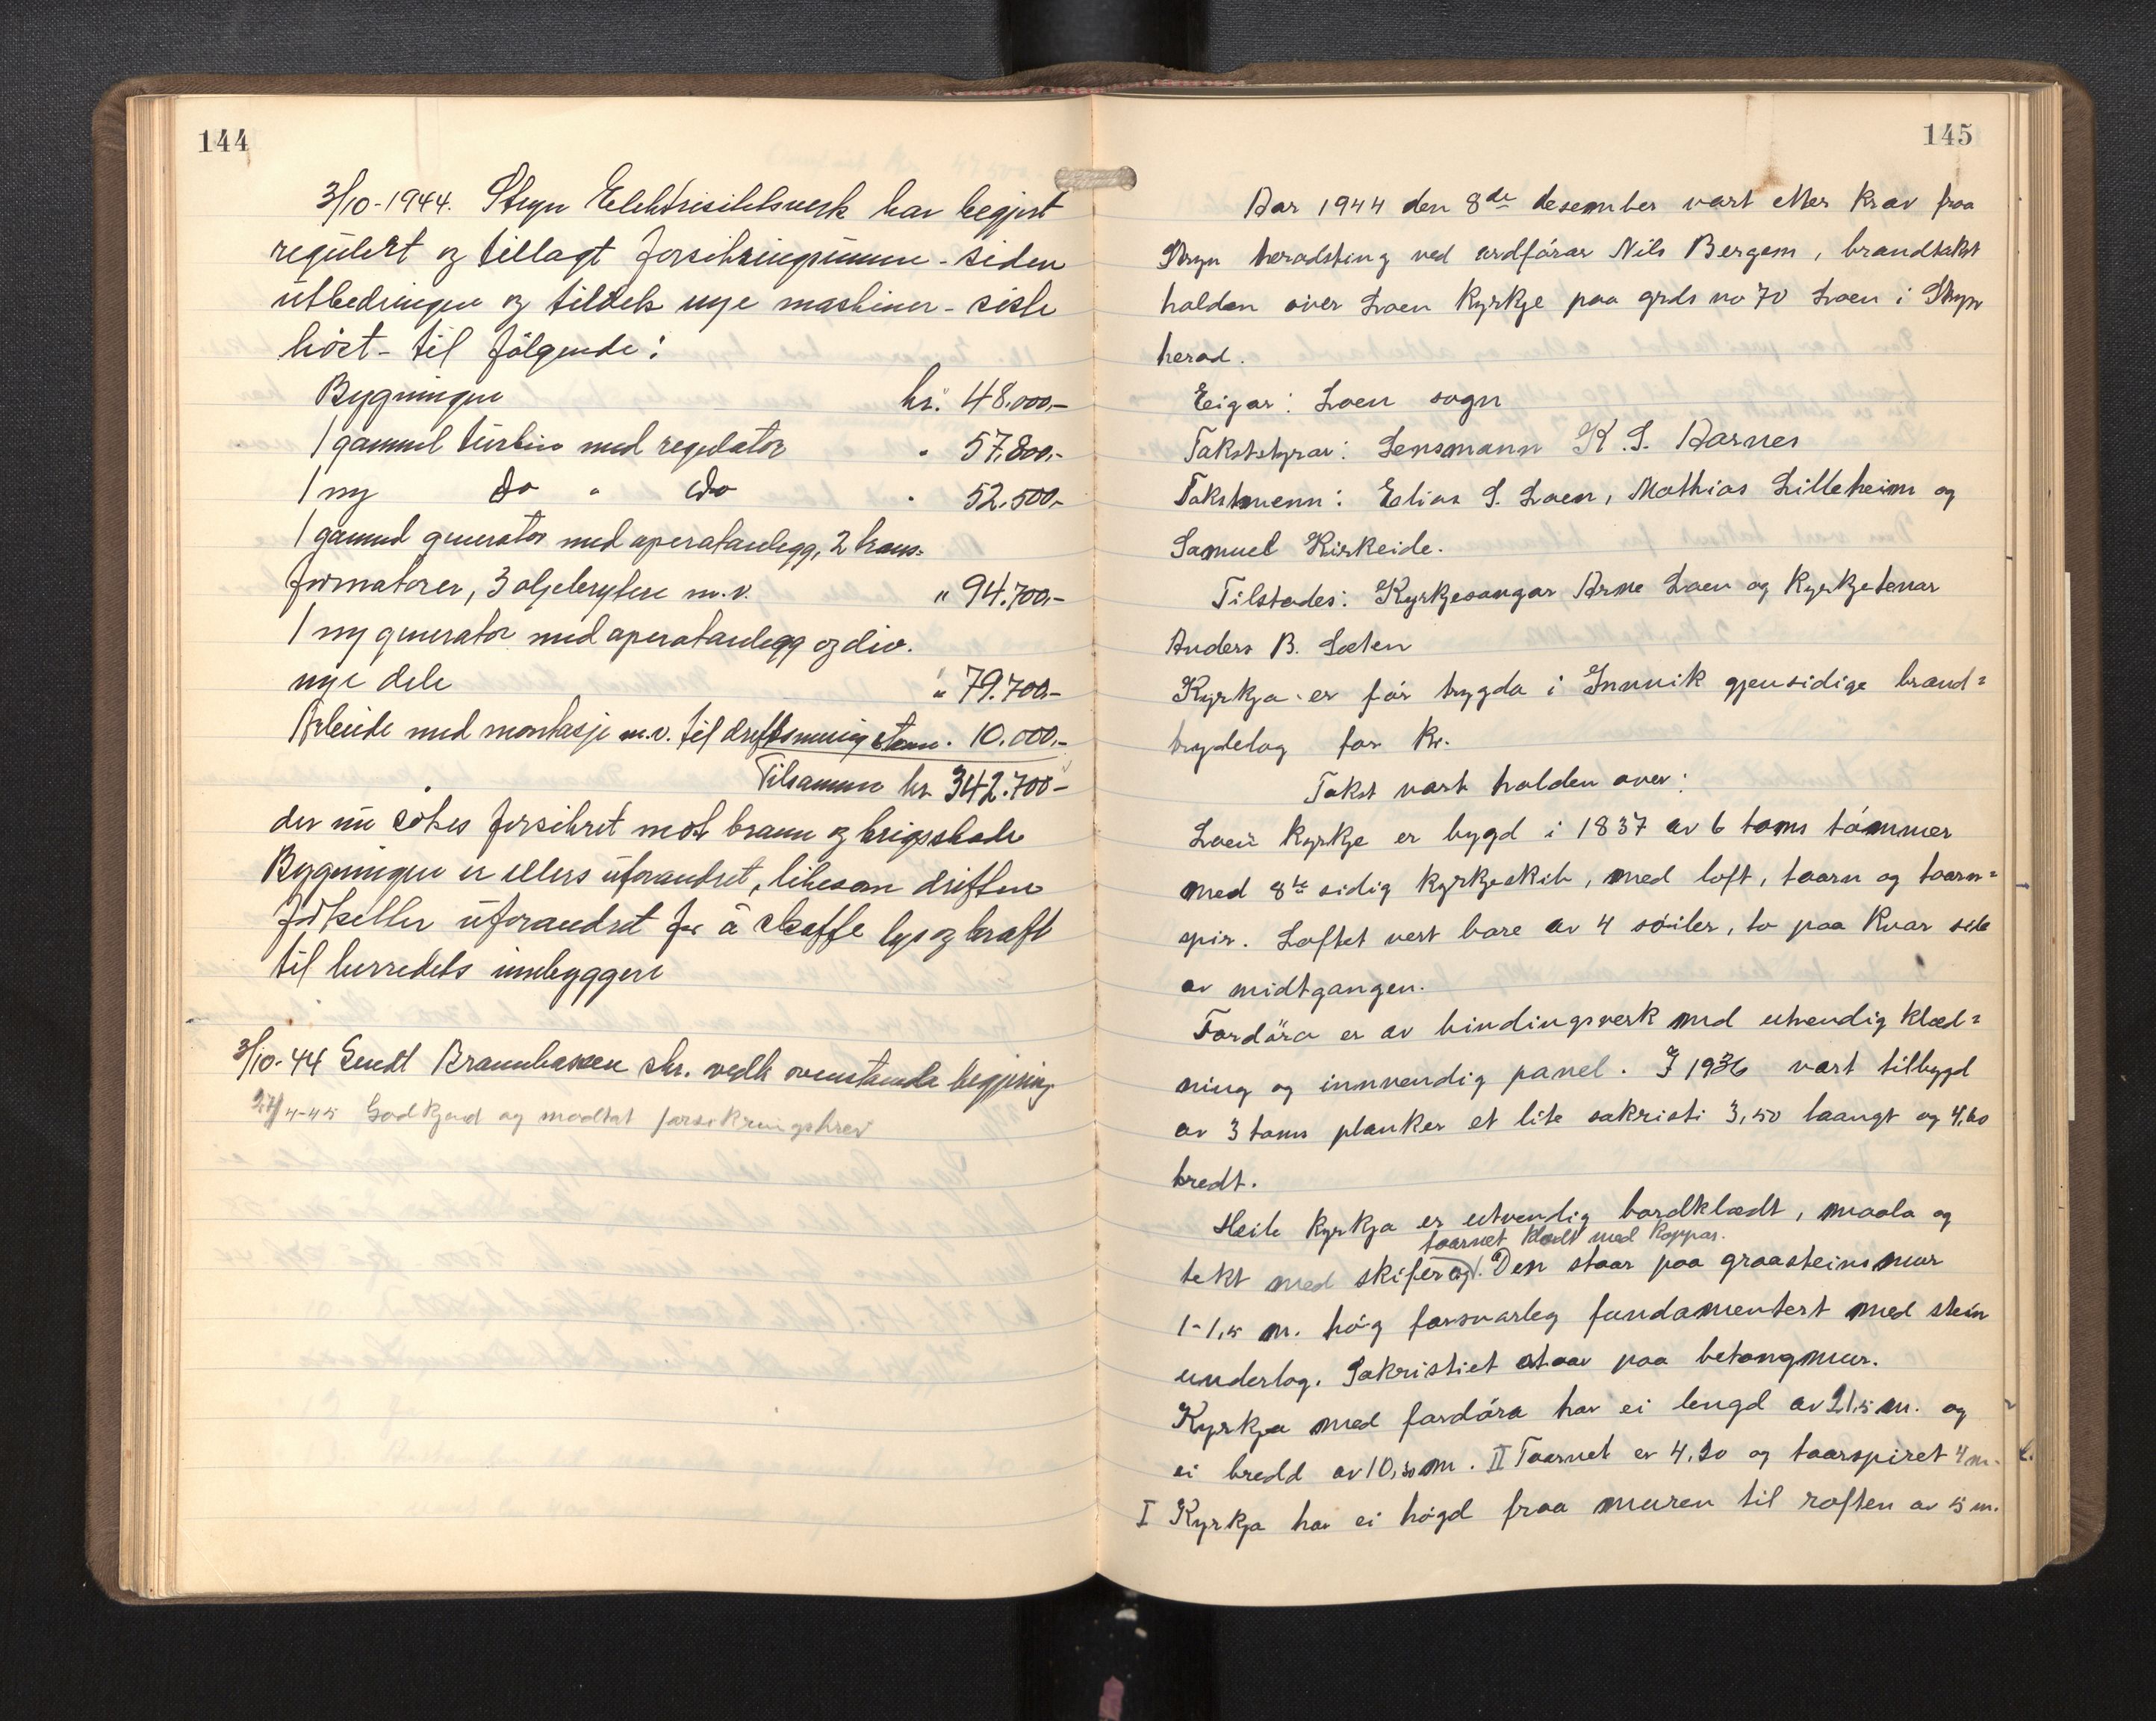 144
3/10-1944. Stryn Elektrisitetsverk har begjert
regulert og tillagt forsikringsumme - siden
utbedringen og tildels nye maskiner - siste
høst - til følgende:
Bygningen kr. 48.000,-
1 gammel turbin med regulator " 57.800,-
1 ny do " do " 52.500,-
1 gammel generator med aperatanlegg, 2 trans-
formatorer, 3 oljebrytere m.v. " 94.700,-
1 ny generator med aperatanlegg og div.
nye dele " 79.700,-
Arbeide med montasje m.v. til 10.000,-
Tilsammen kr. 342.700-
der nu søkes forsikret mot brann og krigsskade
Bygningen er ellers uforandret, likesom driften
fortsetter uforandret for å skaffe lys og kraft
til herredets innbyggere
3/10-44 Sendt Brannkassen skr. vedk ovenstaaende begjering
27/4-45 Godkjend og modtat forsikringsbrev
145
Aar 1944 den 8de desember vart etter krav fraa
Stryn heradsting ved ordførar Nils Bergem, brandtakst
halden over Loen kyrkje paa grds no 70 Loen i Stryn
herad.
Eigar: Loen sogn
Takststyrar: Lensmann K. S. Aarnes
Takstmenn: Elias S. Loen, Mathias Lilleheim og
Samuel Kirkeide.
Tilstades: Kyrkjesongar Arne Loen og Kyrkjetenar
Anders B. Sæten
Kyrkja er før trygda i Innvik gjensidige brand=
trydelag for kr.
Takst vart halden over:
Loen kyrkje er bygd i 1837 av 6 toms tømmer
med 8te sidig kyrkjeskib, med loft, taarn og taarn=
spir. Loftet vert bore av 4 søiler, to paa kvar side
av midtgangen.
Fordøra er av bindingsverk med utvendig klæd=
ning og innvendig panel. I 1936 vart tilbygd
av 3 toms planker et lite sakristi 3,50 laangt og 4,60
bredt.
Heile kyrkja er utvendig bordklædt, maala og
taarnet klædt med koppar.
tekt med skifer og. Den staar paa graasteinsmur
1-1,5 m. høg forsvarleg fundamentert med stein
underlag. Sakristiet staar paa betongmur.
Kyrkja med fordøra har ei lengd av 21,5 m. og
ei bredd av 10,30 m. II Taarnet er 4,20 og taarspiret 4 m.
I Kyrkja har ei høgd fraa muren til roften av 5 m.